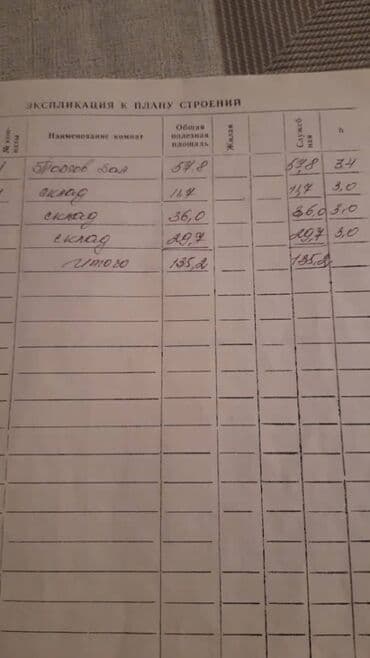 ЭКСПЛИКАЦИЯ К ПЛАНУ СТРОЕНИЙ
№ ком- наты Наименование комнат Общая полезная площадь Жилая Служеб ная h
1 Торгов зал 57,8 57,8 3,4
склад 11,7 11,7 3,0
склад 36,0 36,0 3,0
склад 29,7 29,7 3,0
Итого 135,2 135,2